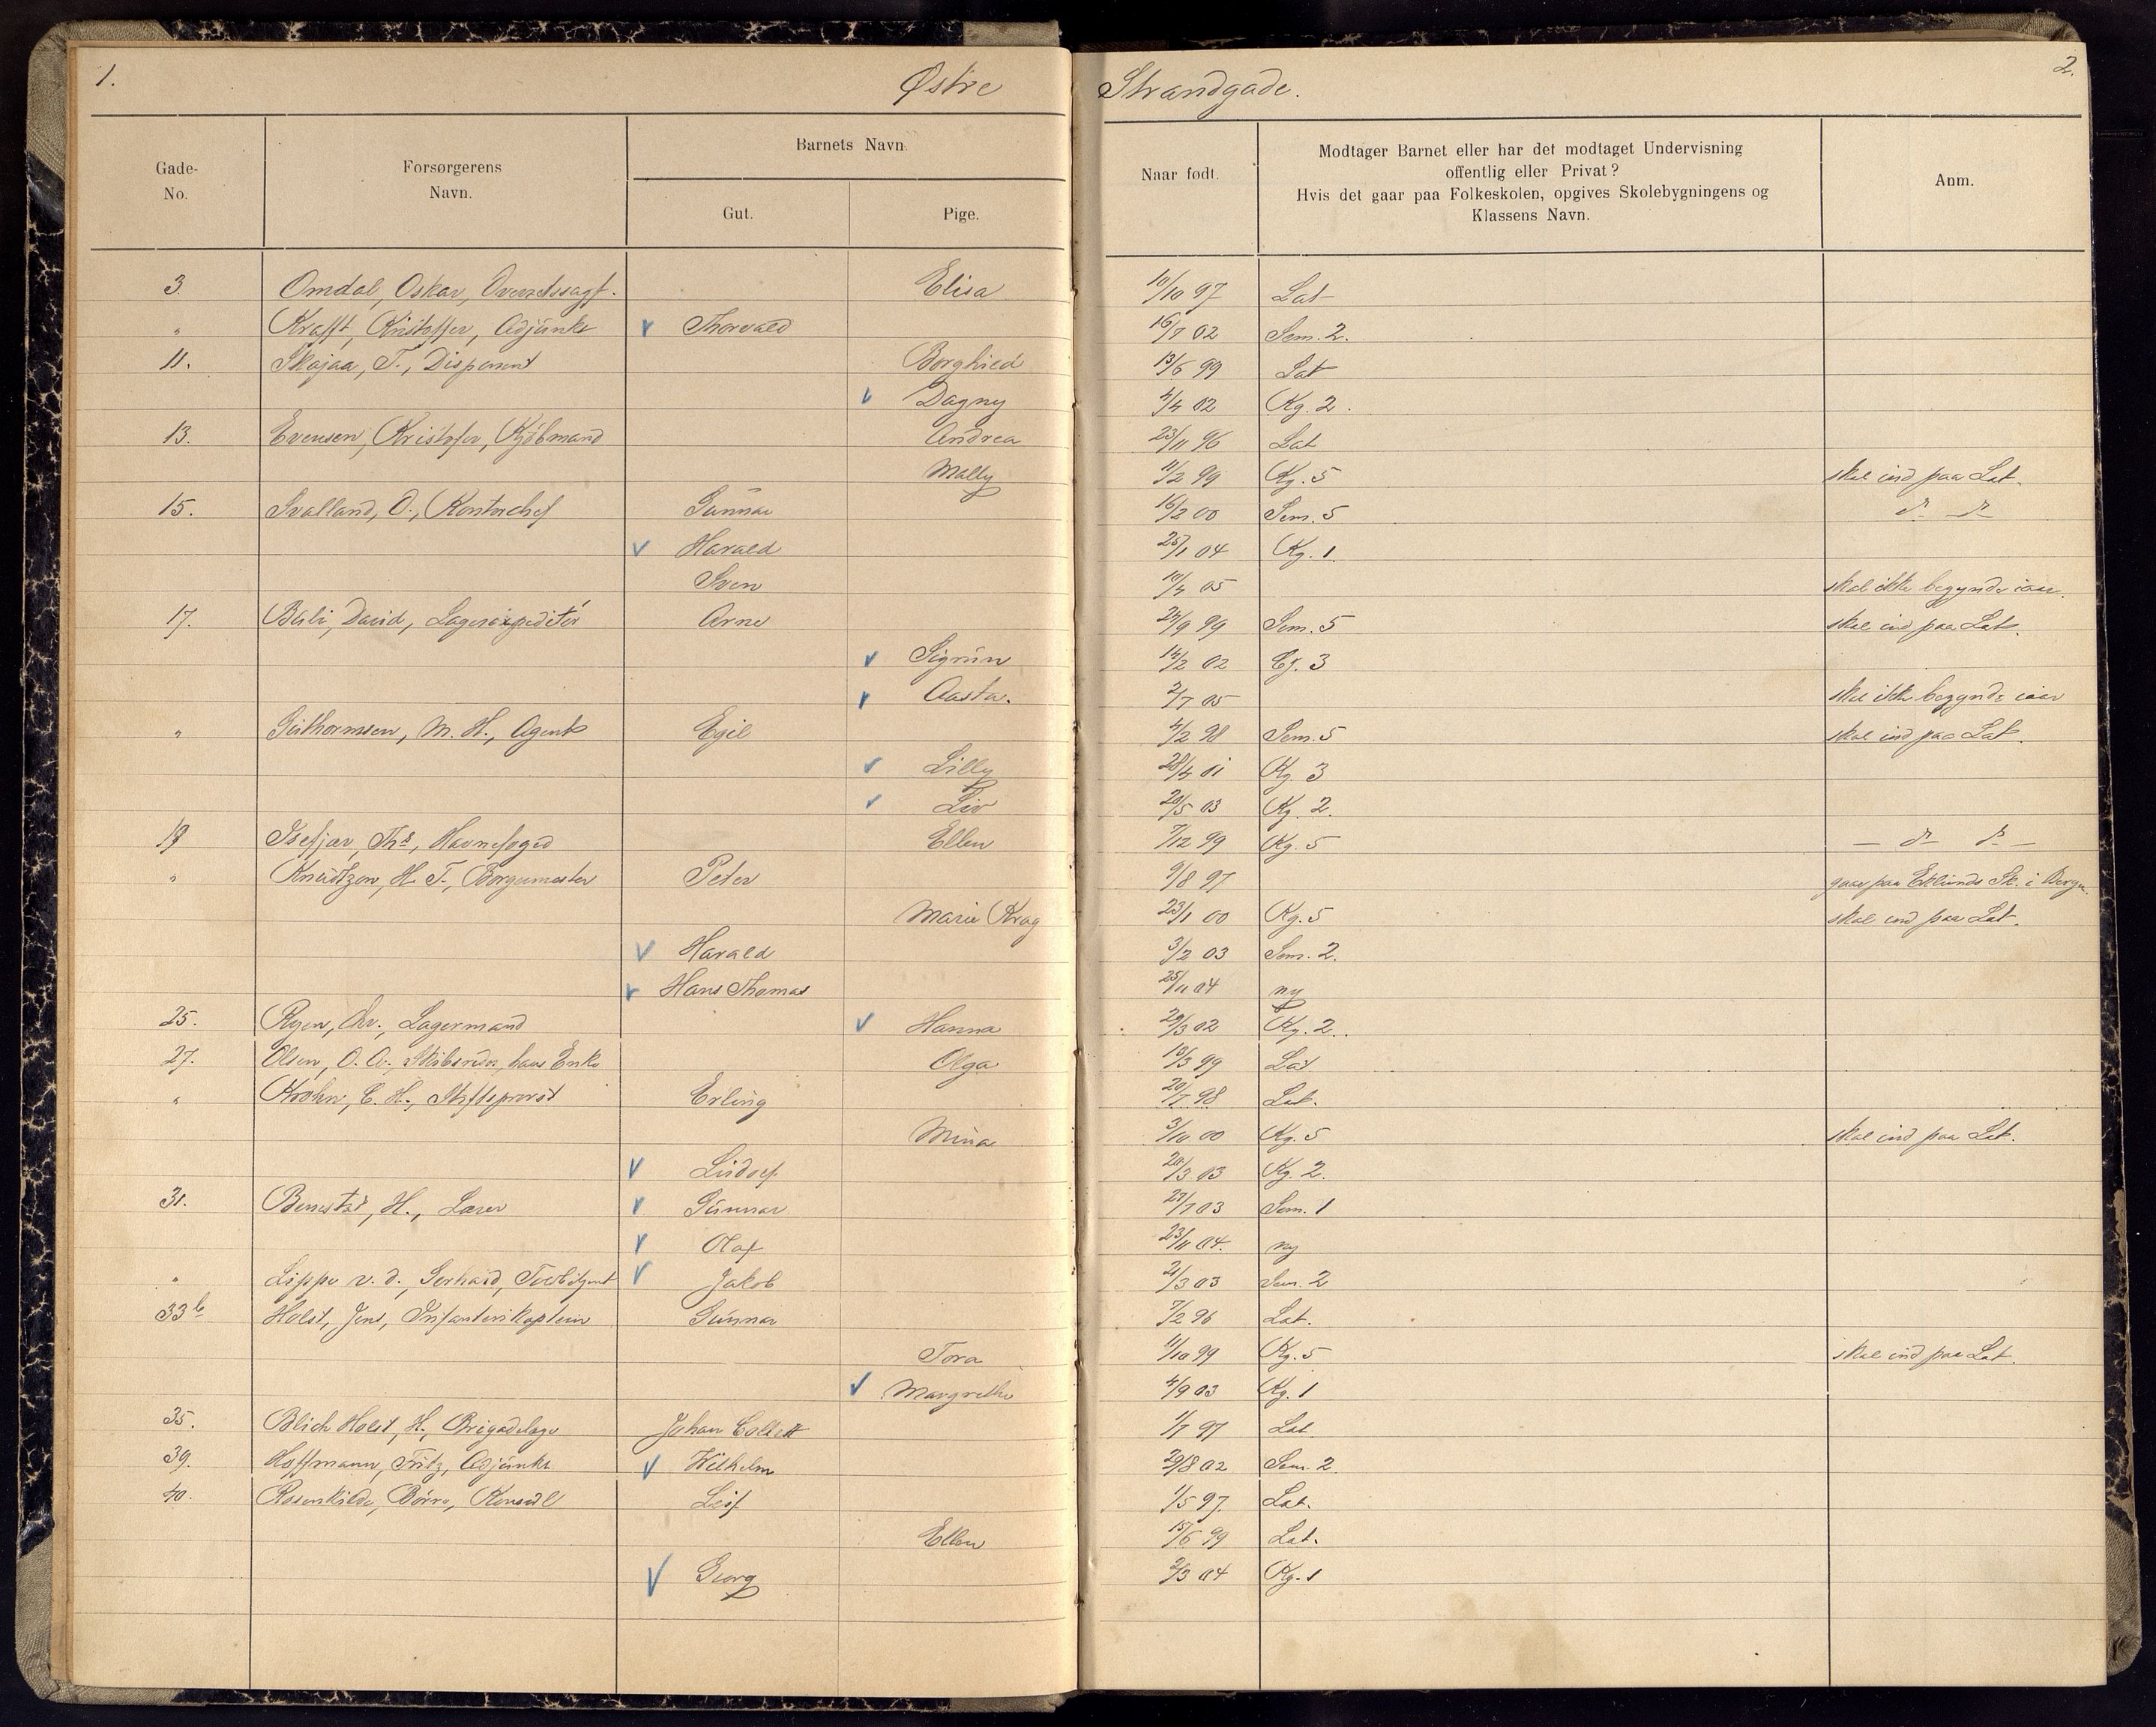 1. Østre Strandgade. 2.
Gade-No. Forsørgerens Navn. Barnets Navn. Gut. Pige. Naar født. Modtager Barnet eller har det modtaget Undervisning offentlig eller Privat? Hvis det gaar paa Folkeskolen, opgives Skolebygningens og Klassens Navn. Anm.
3 Omdal, Oskar, Overretssagf. Elisa 10/10 97 Lat
" Krafft, Kristoffer, Adjunkt Thorvald 16/7 02 Sem. 2.
11. Skajaa, T., Disponent Borghied 13/6 99 Lat
Dagny 4/4 02 Kg. 2.
13. Evensen, Kristofer, Kjøbmand Andrea 23/11 96 Lat
Mally 11/2 99 Kg. 5 skal ind paa Lat.
15. Svalland, O., Kontorchef Gunnar 16/2 00 Sem. 5
Harald 25/1 04 Kg. 1.
Sven 10/4 05 skal ikke begynde iaar.
17. David, Arne 24/9 99 Sem. 5 skal ind paa Lat.
Sigrun 14/2 02 3
Aasta. 2/7 05 skal ikke begynde iaar
" Guthormsen, M. H., Agent Egil 4/2 98 Sem. 5 skal ind paa Lat.
Lilly 28/4 01 Kg. 3
Liv 20/5 03 Kg. 2.
19 Isefjær, Ths, Havnefoged Ellen 7/12 99 Kg. 5
" Knudtzon, H. T., Borgermester Peter 9/8 97 gaar paa Eklunds Sk. i
Marie Krag 23/1 00 Kg. 5 skal ind paa Lat.
Harald 3/2 03 Sem. 2.
Hans Thomas 25/11 04 ny
25. Ryen, Chr., Lagermand Hanna 29/3 02 Kg. 2.
27. Olsen, O. A., Skibsreder, hans Enke Olga 13/3 99 Lat
" Krohn, C. H., Stiftsprovst Erling 20/7 98 Lat.
Mina 3/10 00 Kg. 5 skal ind paa Lat.
Ludolf 20/3 03 Kg. 2.
31. Benestad, H., Lærer Gunnar 27/7 03 Sem. 1
Olaf 23/11 04. ny
" Lippe v. d., Gerhard, Jakob 21/3 03 Sem. 2
33b Holst, Jens, Infanterikaptein Gunnar 7/2 96 Lat.
Tora 11/10 99 Kg. 5 skal ind paa Lat.
Margrethe 4/9 03 Kg. 1
35. Blich Holst, H., Brigadelæge Johan Collett 1/7 97 Lat
39. Hoffmann, Fritz, Adjunkt Wilhelm 29/8 02 Sem. 2.
40. Rosenkilde, Børre, Konsul Leif 1/5 97 Lat.
Ellen 15/6 99 Lat.
Georg 2/3 04 Kg. 1